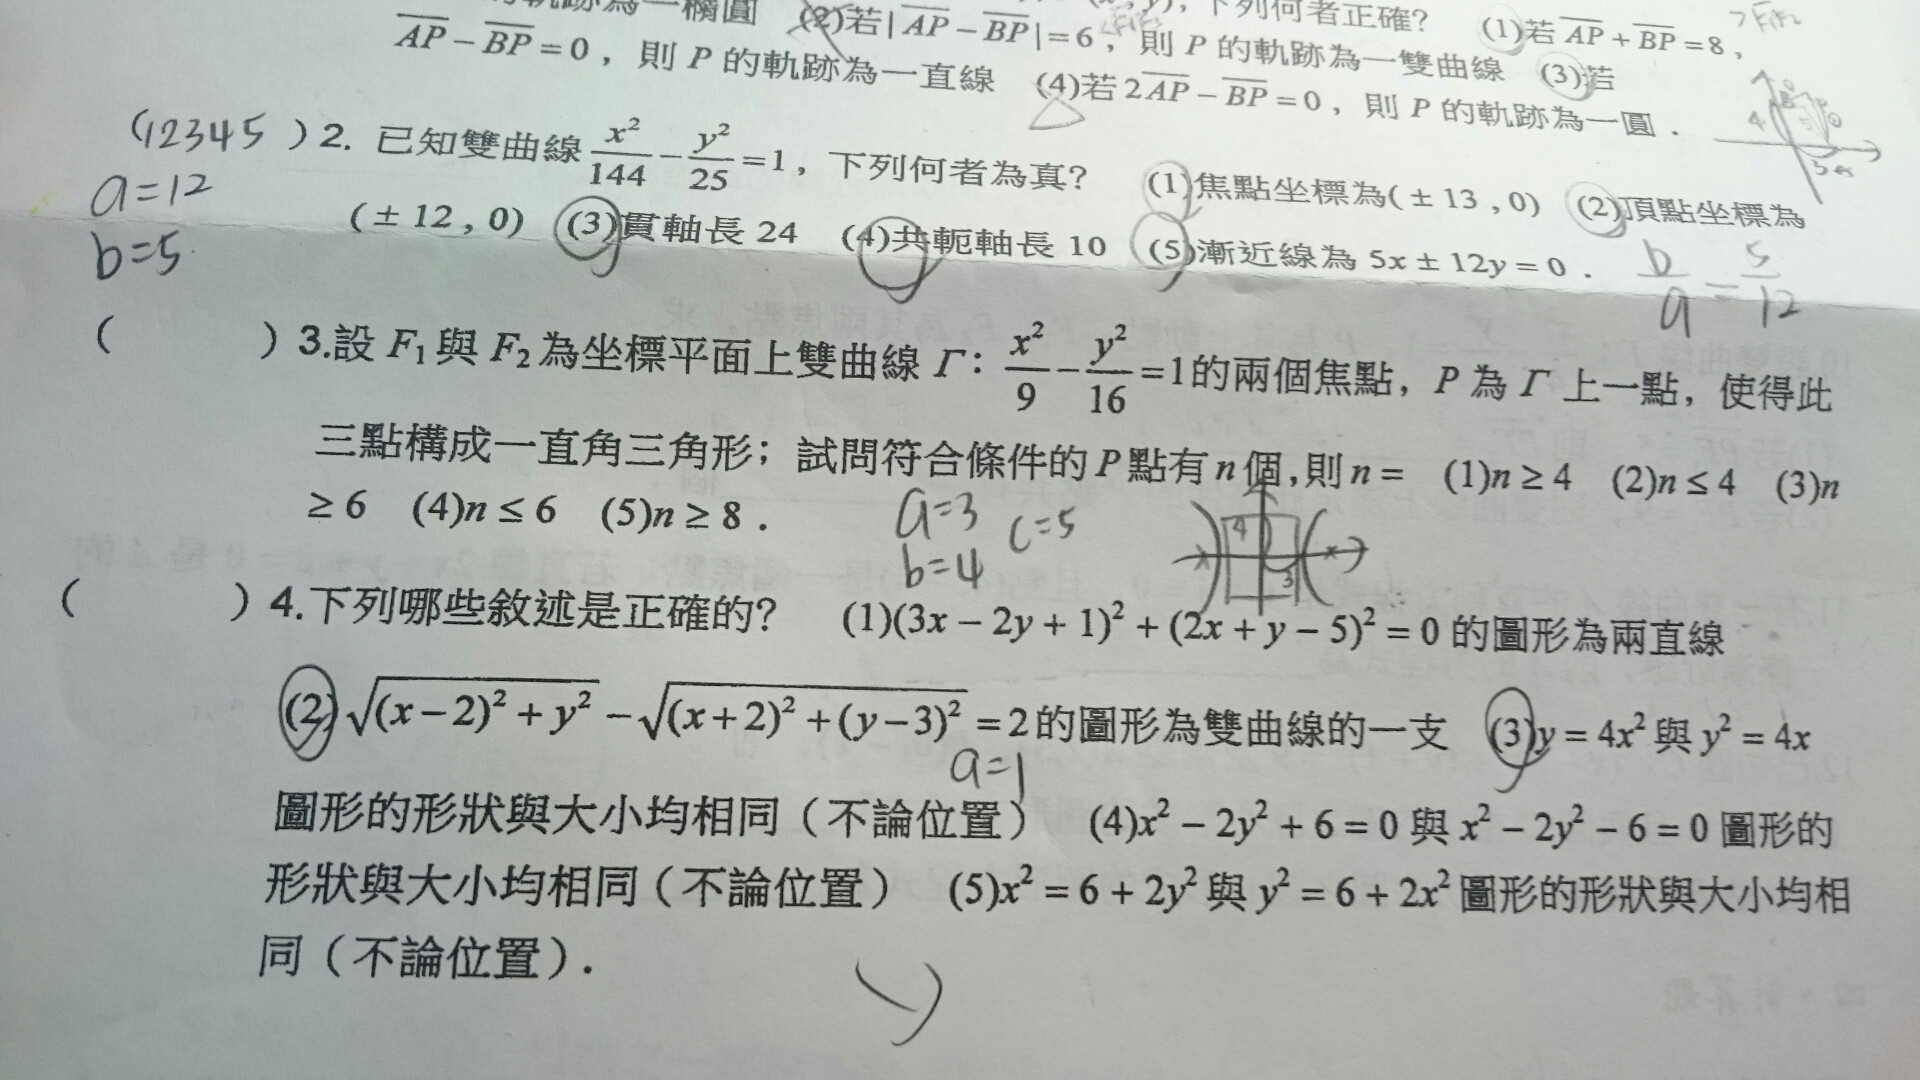 的軌跡為一橢圓 (2)若| AP − BP |=6，則 P 的軌跡為一雙曲線 (3)若
下列何者正確? (1)若 AP + BP =8，
AP − BP =0，則 P 的軌跡為一直線 (4)若 2AP − BP =0，則 P 的軌跡為一圓．
(12345 ) 2. 已知雙曲線 x²/144 − y²/25 =1，下列何者為真? (1)焦點坐標為(±13,0) (2)頂點坐標為
a=12
(±12,0) (3)貫軸長 24 (4)共軛軸長 10 (5)漸近線為 5x±12y=0．
b=5
b/a = 5/12
( ) 3.設 F₁與 F₂為坐標平面上雙曲線 Γ：x²/9 − y²/16 =1的兩個焦點，P 為 Γ 上一點，使得此
三點構成一直角三角形；試問符合條件的 P 點有 n 個,則 n = (1)n ≥ 4 (2)n ≤ 4 (3)n
≥ 6 (4)n ≤ 6 (5)n ≥ 8．
a=3 c=5
b=4
4
3
( ) 4.下列哪些敘述是正確的? (1)(3x − 2y + 1)² + (2x + y − 5)² = 0 的圖形為兩直線
(2) √((x−2)² + y²) − √((x+2)² + (y−3)²) = 2 的圖形為雙曲線的一支 (3)y = 4x² 與 y² = 4x
a=1
圖形的形狀與大小均相同（不論位置） (4)x² − 2y² + 6 = 0 與 x² − 2y² − 6 = 0 圖形的
形狀與大小均相同（不論位置） (5)x² = 6 + 2y² 與 y² = 6 + 2x² 圖形的形狀與大小均相
同（不論位置）．